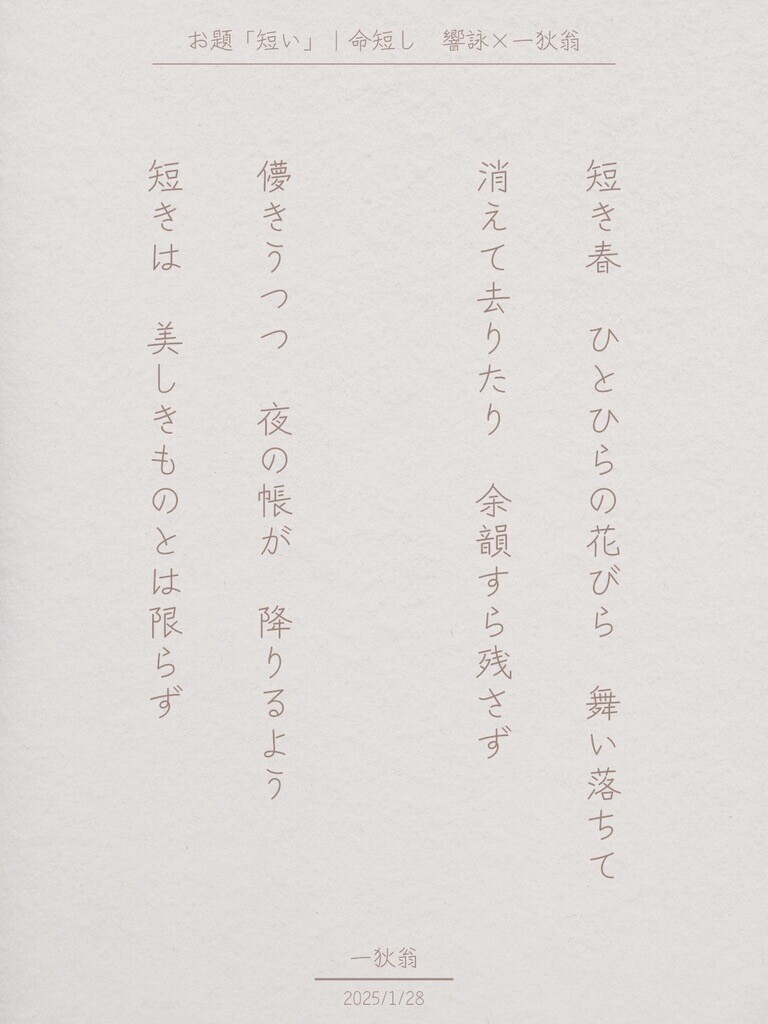 お題「短い」｜命短し　響詠×一狄翁
短き春　ひとひらの花びら　舞い落ちて
消えて去りたり　余韻すら残さず
儚きうつつ　夜の帳が　降りるよう
短きは　美しきものとは限らず
一狄翁
2025/1/28